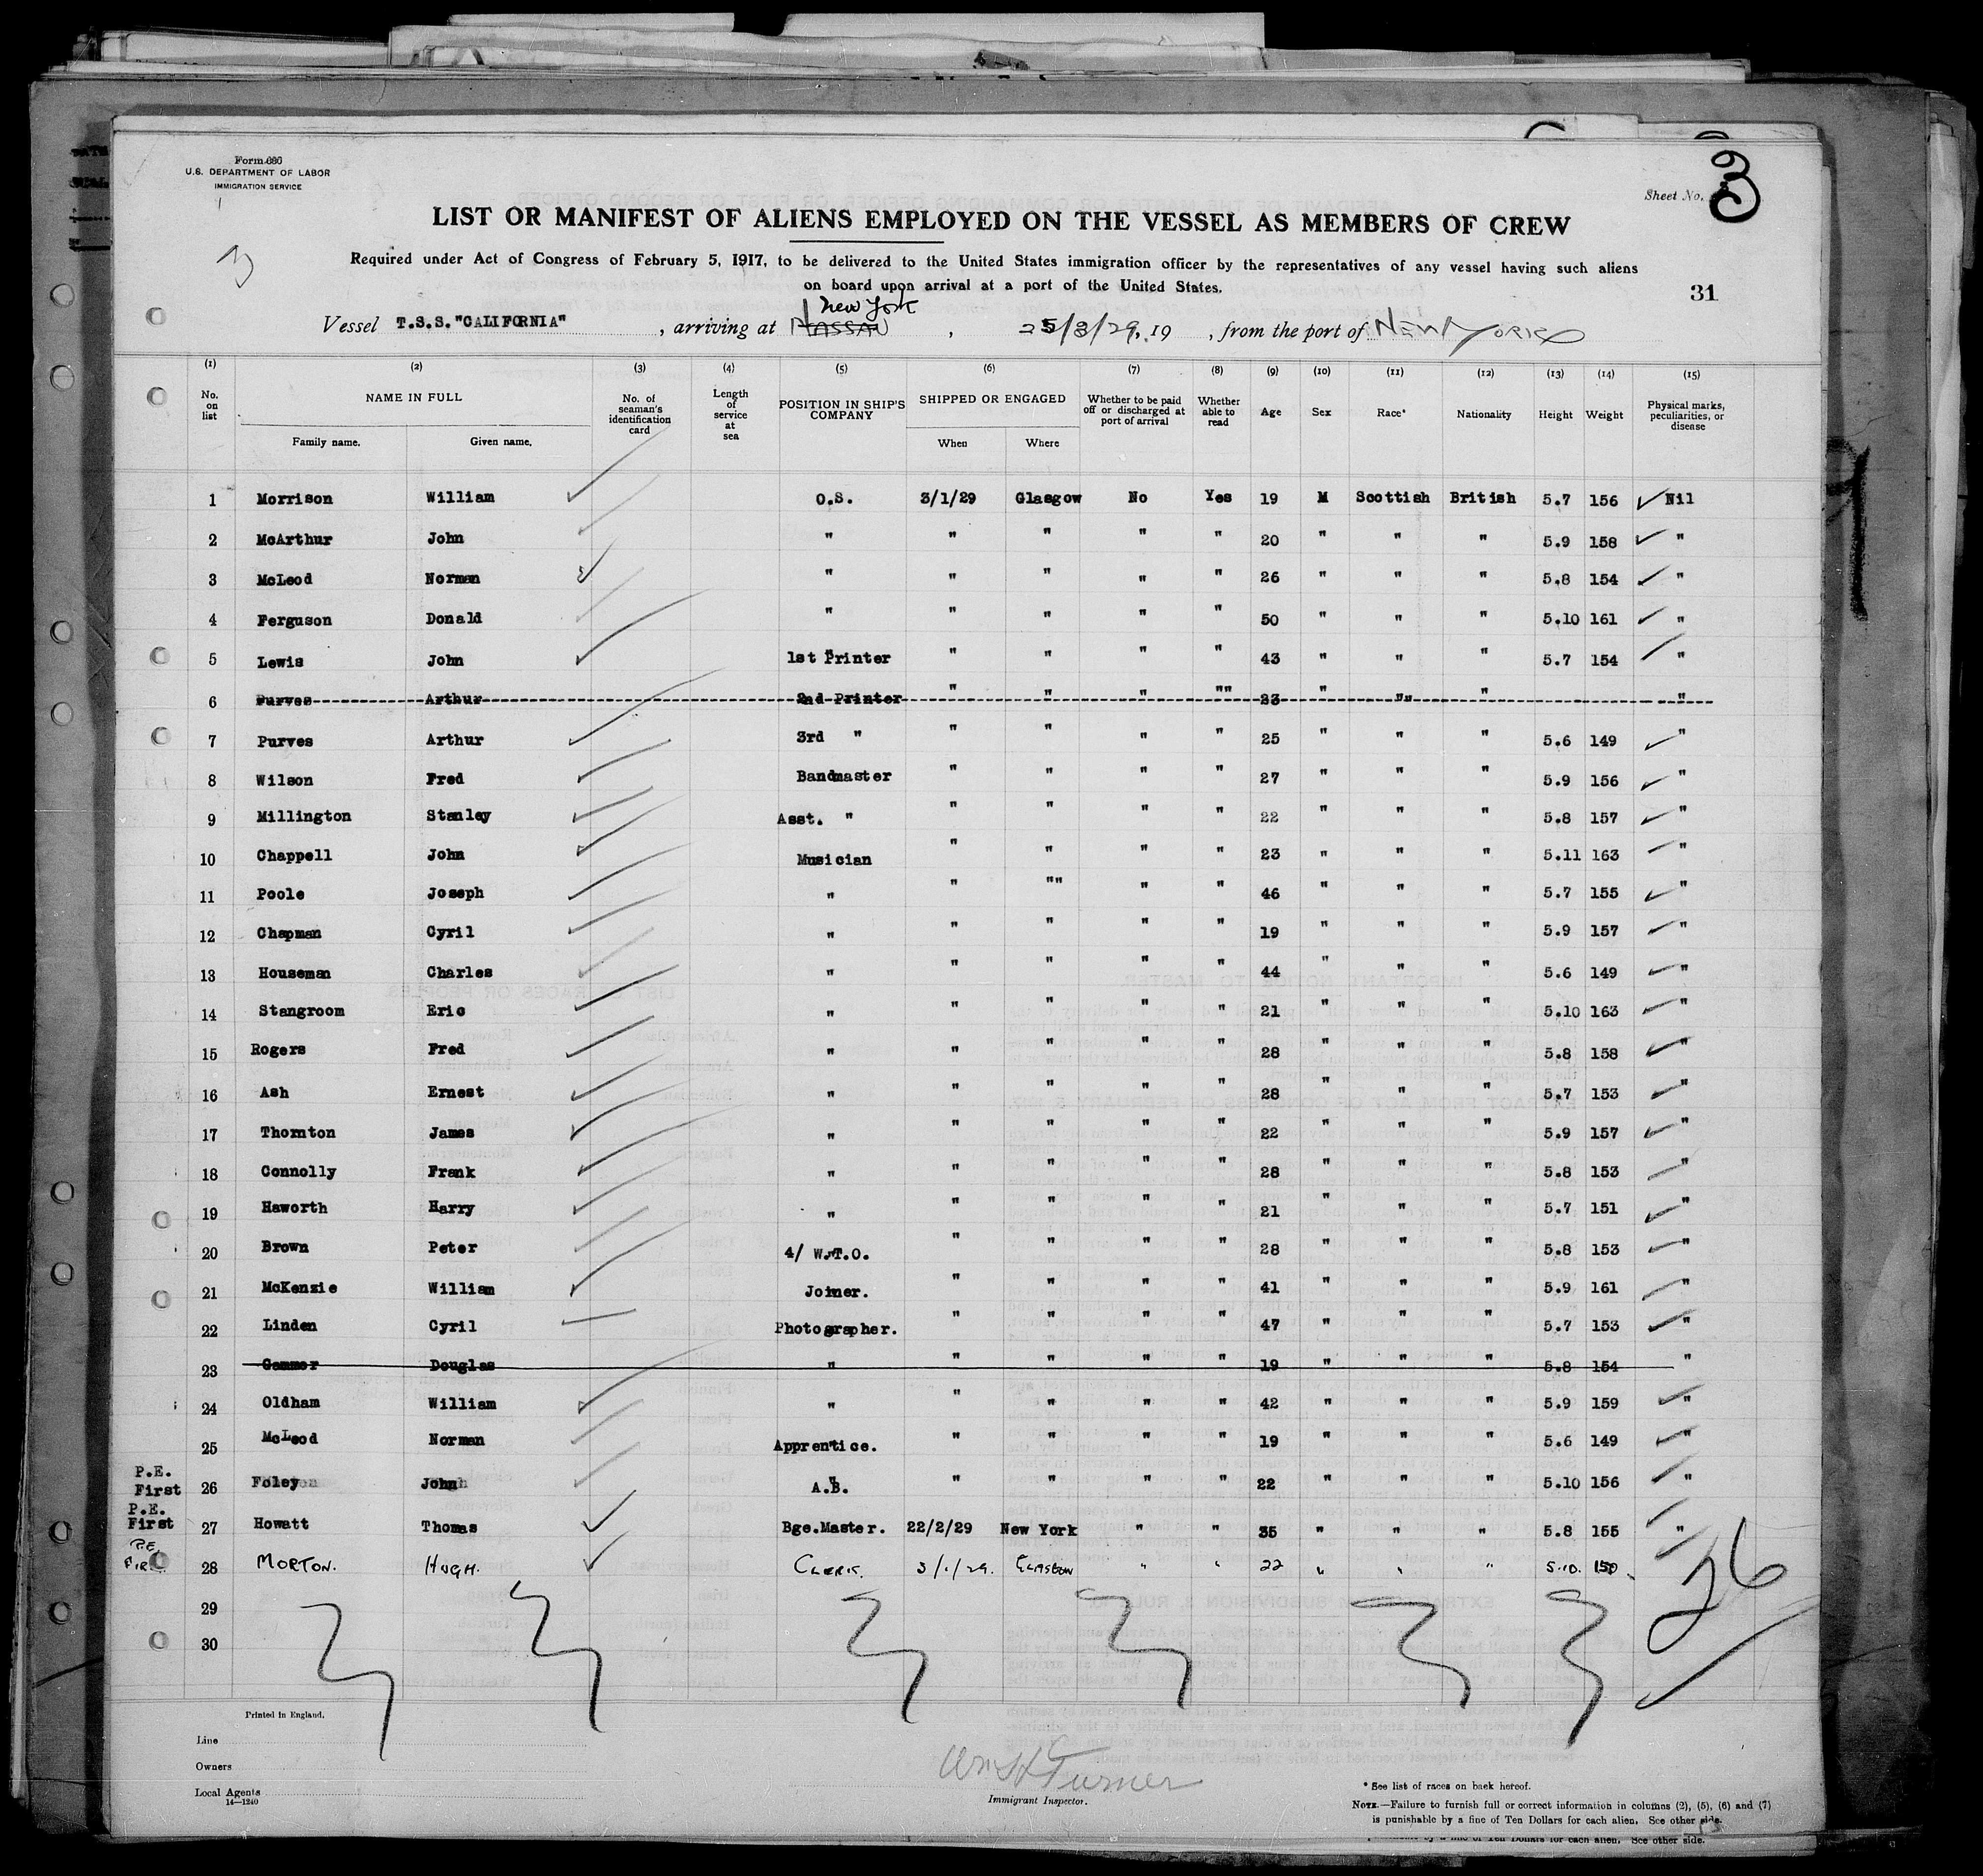 Form 686
U.S. DEPARTMENT OF LABOR
IMMIGRATION SERVICE
Sheet No. 3
3
LIST OR MANIFEST OF ALIENS EMPLOYED ON THE VESSEL AS MEMBERS OF CREW
Required under Act of Congress of February 5, 1917, to be delivered to the United States immigration officer by the representatives of any vessel having such aliens
on board upon arrival at a port of the United States.
31
New York
Vessel T.S.S."CALIFORNIA" , arriving at NASSAU , 25/3/29, 19 , from the port of NEW YORK
(1) (2) (3) (4) (5) (6) (7) (8) (9) (10) (11) (12) (13) (14) (15)
No. on list NAME IN FULL Family name. Given name. No. of seaman's identification card Length of service at sea POSITION IN SHIP'S COMPANY SHIPPED OR ENGAGED When Where Whether to be paid off or discharged at port of arrival Whether able to read Age Sex Race* Nationality Height Weight Physical marks, peculiarities, or disease
1 Morrison William O.S. 3/1/29 Glasgow No Yes 19 M Scottish British 5.7 156 Nil
2 McArthur John " " " " " 20 " " " 5.9 158 "
3 McLeod Norman " " " " " 26 " " " 5.8 154 "
4 Ferguson Donald " " " " " 50 " " " 5.10 161 "
5 Lewis John 1st Printer " " " " 43 " " " 5.7 154 "
6 Purves Arthur 2nd Printer " " " "" 23 " "" " "
7 Purves Arthur 3rd " " " " " 25 " " " 5.6 149 "
8 Wilson Fred Bandmaster " " " " 27 " " " 5.9 156 "
9 Millington Stanley Asst. " " " " " 22 " " " 5.8 157 "
10 Chappell John Musician " " " " 23 " " " 5.11 163 "
11 Poole Joseph " " "" " " 46 " " " 5.7 155 "
12 Chapman Cyril " " " " " 19 " " " 5.9 157 "
13 Houseman Charles " " " " " 44 " " " 5.6 149 "
14 Stangroom Eric " " " " " 21 " " " 5.10 163 "
15 Rogers Fred " " " " " 28 " " " 5.8 158 "
16 Ash Ernest " " " " " 28 " " " 5.7 153 "
17 Thornton James " " " " " 22 " " " 5.9 157 "
18 Connolly Frank " " " " " 28 " " " 5.8 153 "
19 Haworth Harry " " " " " 21 " " " 5.7 151 "
20 Brown Peter 4/ W.T.O. " " " " 28 " " " 5.8 153 "
21 McKenzie William Joiner. " " " " 41 " " " 5.9 161 "
22 Linden Cyril Photographer. " " " " 47 " " " 5.7 153 "
23 Gammer Douglas " " " " " 19 " " " 5.8 154 "
24 Oldham William " " " " " 42 " " " 5.9 159 "
25 McLeod Norman Apprentice. " " " " 19 " " " 5.6 149 "
P.E. First 26 Foley John A.B. " " " " 22 " " " 5.10 156 "
P.E. First 27 Howatt Thomas Bge.Master. 22/2/29 New York " " 35 " " " 5.8 155 "
P.E. FIRST 28 MORTON. HUGH. CLERK. 3/1/29. GLASGOW " " 22 " " " 5.10. 150
29
30
26
Printed in England.
Line
Owners
Local Agents
14—1240
Wm H Turner
Immigrant Inspector.
* See list of races on back hereof.
NOTE.—Failure to furnish full or correct information in columns (2), (5), (6) and (7)
is punishable by a fine of Ten Dollars for each alien. See other side.
by a fine of Ten Dollars for each alien. See other side.